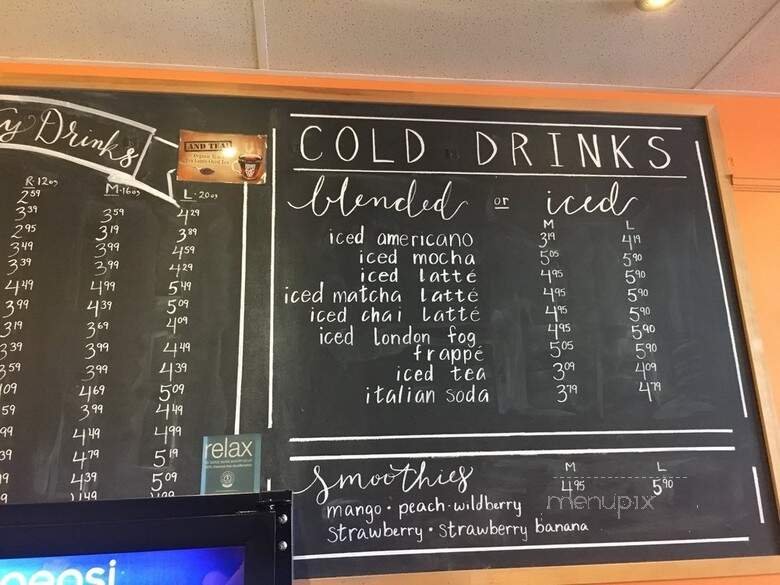 y Drinks
AND TEA!
R·12oz M·16oz L·20oz
2⁵⁹ 3⁵⁹ 4²⁹
3³⁹ 3¹⁹ 3⁸⁹
2⁹⁵ 3⁹⁹ 4⁵⁹
3⁴⁹ 3⁹⁹ 4²⁹
3³⁹ 4⁹⁹ 5⁴⁹
4⁴⁹ 4³⁹ 5⁰⁹
3⁹⁹ 3⁶⁹ 4⁰⁹
3¹⁹ 3⁹⁹ 4⁴⁹
3³⁹ 3⁹⁹ 4³⁹
3⁵⁹ 4⁶⁹ 5⁰⁹
09 3⁹⁹ 4⁴⁹
59 4⁴⁹ 4⁹⁹
99 4⁷⁹ 5¹⁹
39 4³⁹ 5⁰⁹
relax
COLD DRINKS
blended or iced
M L
iced americano 3¹⁹ 4¹⁹
iced mocha 5⁰⁵ 5⁹⁰
iced latté 4⁹⁵ 5⁹⁰
iced matcha latté 4⁹⁵ 5⁹⁰
iced chai latté 4⁹⁵ 5⁹⁰
iced london fog 4⁹⁵ 5⁹⁰
frappé 5⁰⁵ 5⁹⁰
iced tea 3⁰⁹ 4⁰⁹
italian soda 3⁷⁹ 4⁷⁹
smoothies M L
4⁹⁵ 5⁹⁰
mango · peach · wildberry
strawberry · strawberry banana
menupix
pepsi